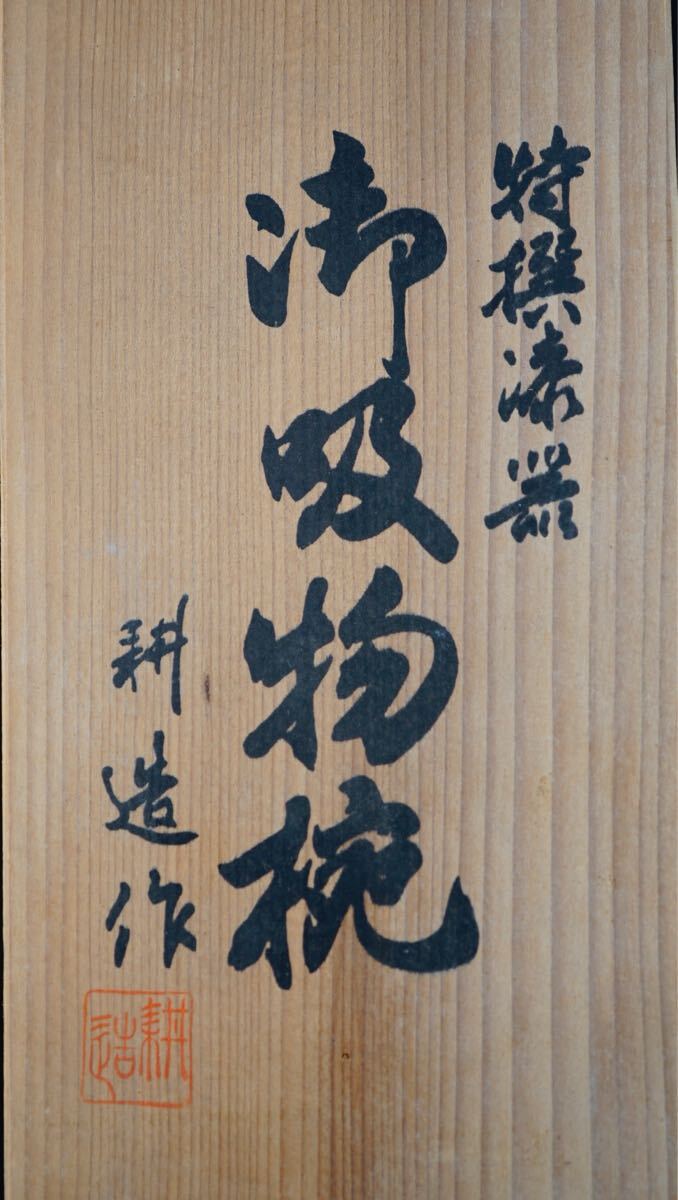 特撰漆器
御吸物椀
耕造作
耕造